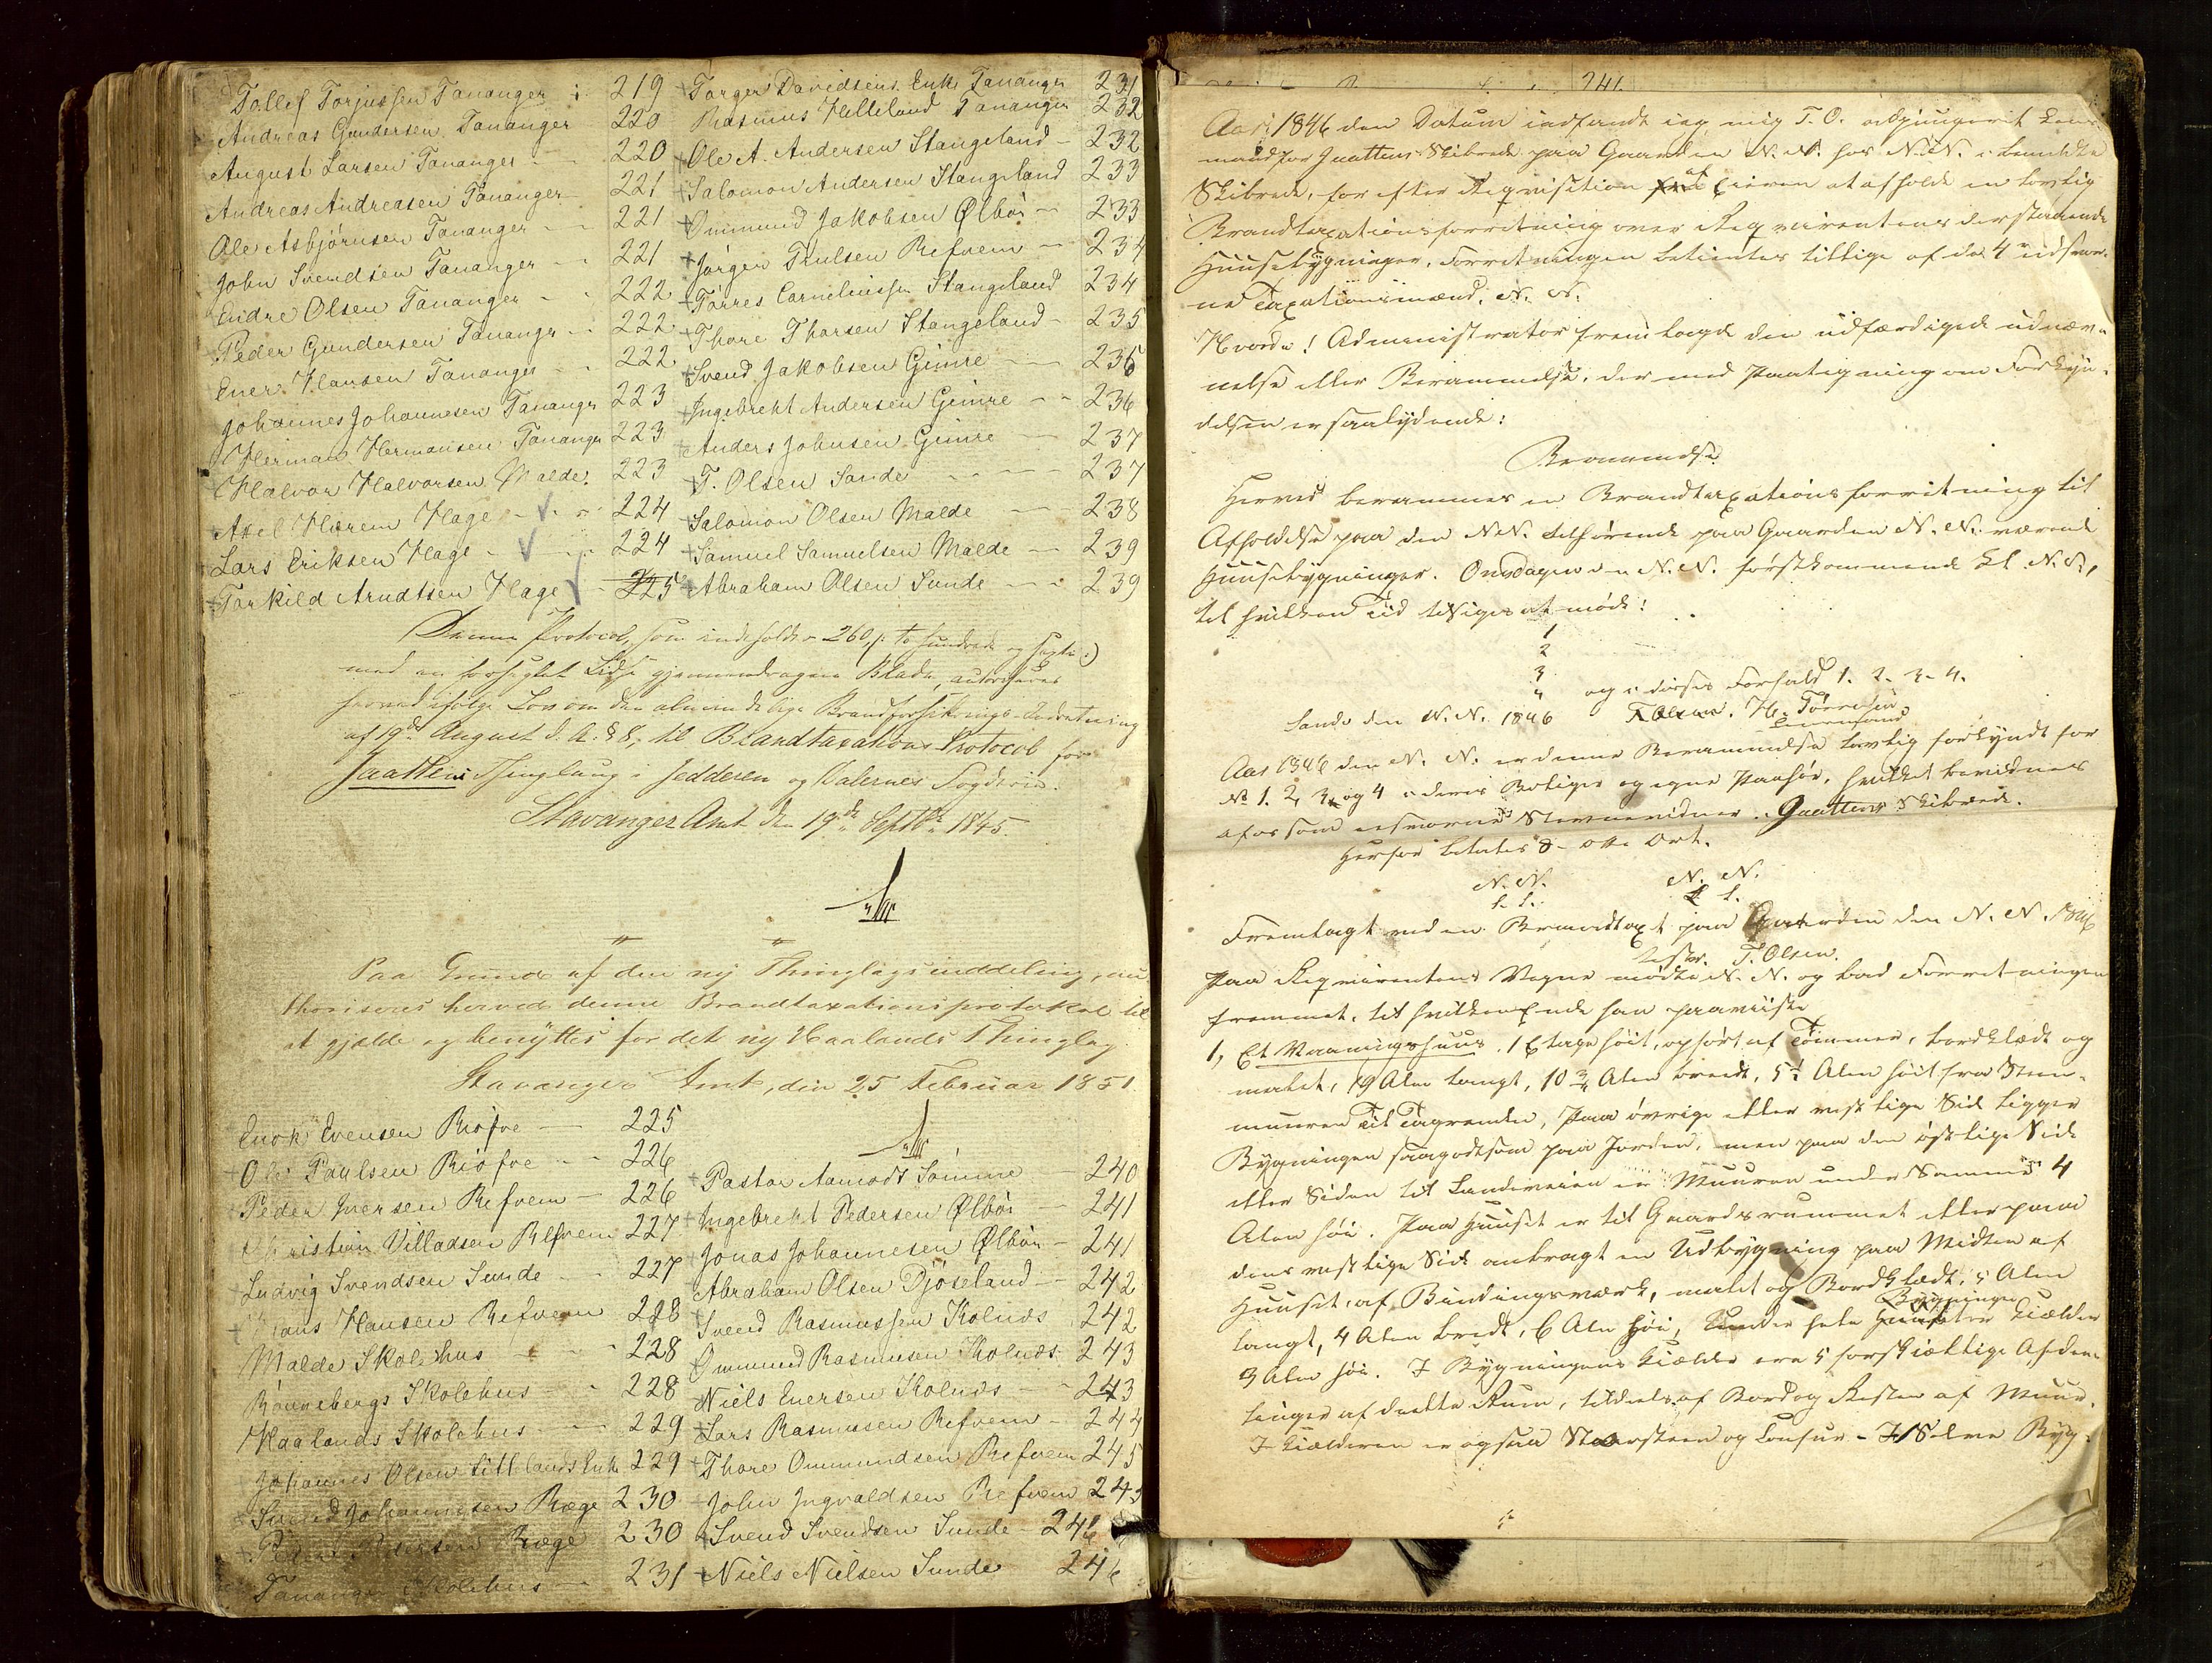 Tollef Torjussen Tananger 219
Andreas Gundersen Tananger 220
August Larsen Tananger 220
Andreas Andreasen Tananger 221
Ole Asbjörnsen Tananger 221
John Svendsen Tananger 221
Endre Olsen Tananger 222
Peder Gundersen Tananger 222
Ener Hansen Tananger 222
Johannes Johannesen Tananger 223
Herman Hermansen Tananger 223
Halvor Halvorsen Malde 223
Axel Hærem Hage 224
Lars Eriksen Hage 224
Torkild Arndtsen Hage 225
Torger Davidsens Enke Tananger 231
Rasmus Helleland Tananger 232
Ole A. Andersen Stangeland 232
Salomon Andersen Stangeland 233
Ommund Jakobsen Ølbör 233
Jörgen Trulsen Refvem 234
Törres Corneliussen Stangeland 234
Thore Thorsen Stangeland 235
Svend Jakobsen Gimre 236
Ingebrekt Andersen Gimre 236
Anders Johnsen Gimre 237
T. Olsen Sande 237
Salomon Olsen Malde 238
Samuel Samuelsen Malde 239
Abraham Olsen Sunde 239
Denne Protocol, som indeholder 260 /: to hundrede og sexti :/
med en forseglet Lidse gjennemdragne Blade, authoriseres
herved ifølge Lov om den almindelige Brandforsikrings-Indretning
af 19de August d. A. § 8, til Brandtaxations Protocol for
Jaattens Thinglaug i Jedderen og Dalernes Fogderie.
Stavanger Amt den 19de Septbr 1845.
Paa Grund af den ny Thinglagsinddeling, au-
thoriseres herved denne Brandtaxationsprotokol til
at gjælde og benyttes for det ny Haalands Thinglag.
Stavanger Amt, den 25 Februar 1851.
Enok Evensen Risfoe 225
Ole Paulsen Risfoe 226
Peder Iversen Refvem 226
Christian Villadsen Refvem 227
Ludvig Svendsen Sunde 227
Hans Hansen Refvem 228
Malde Skolehus 228
Rönnebergs Skolehus 228
Haalands Skolehus 229
Johannes Olsen Enke 229
Svend Johannesen Ræge 230
Peder Pedersen Ræge 230
Tananger Skolehus 231
Pastor Aamodt Sömme 240
Ingebrekt Pedersen Ølbör 241
Jonas Johannesen Ølbör 241
Abraham Olsen Djöseland 242
Svend Rasmussen Kolnæs 242
Ommund Rasmusen Kolnæs 243
Niels Enersen Kolnæs 243
Lars Rasmusen Refvem 244
Thore Ommundsen Refvem 245
John Ingvaldsen Refvem 245
Svend Svendsen Sunde 246
Niels Nielsen Sunde 246
241
Aar 1846 den Datum indfandt jeg mig T. O. adjungerit Lens-
mand for Jaattens Skibrede paa Gaarden N. N. hos N. N. i bemeldte
Skibrede, for efter Reqvisition af Eieren at afholde en lovlig
Brandtaxationsforretning over Reqvirentens derstaaende
Huusebygninger. Forretningen betientes tillige af de 4 udnævn-
ne Taxationsmænd, N. N.
Hvorda! Administrator fremlagde den udfærdigede udnæv-
nelse eller Berammelse, der med Paategning om Forkyn-
delsen er saalydende:
Berammelse
Herved berammes en Brandtaxationsforretning til
Afholdelse paa den N. N. tilhørende paa Gaarden N. N. værende
Huusebygninger. Onsdagen den N. N. førstkommende Kl. N. N.,
til hvilken Tid tilsiges at møde:
1
2
3
4 og i disses Forfald 1. 2. 3. 4.
Sande den N. N. 1846 T. Olsen. H. Törresen
Lensmand
Aar 1846 den N. N. er denne Berammelse lovlig forkyndt for
No 1. 2, 3, og 4 i deres Boliger og egne Paahør, hvilket bevidnes
af os som eedsvorne Stevnevidner i Jaattens Skibrede.
Herfor betales 8 - otte Ort.
N. N. N. N.
Fremlagt ved en Brandtaxt paa Gaarden den N. N. 1846
test. T. Olsen.
Paa Reqvirentens Vegne mødte N. N. og bad Forretningen
fremmet, til hvilken Ende han paaviiste
1, Et Vaaningshuus, 1 Etage høit, opført af Tømmer, bordklædt og
malet, 19 Alen langt, 10 3/4 Alen bredt, 5 1/2 Alen høit fra Steen-
muuren til Tagrenden, Paa øvrige eller vestlige Side ligger
Bygningen saagodtsom paa Jorden, men paa den østlige Side
eller Siden til Landeveien er Muuren under Samme 4
Alen høi. Paa Huuset er til Gaardsrummet eller paa
dens vestlige Side anbragt en Udbygning paa Midten af
Huuset, af Bindingsværk, malet og Bordklædt, 5 Alen
langt, 4 Alen bredt, 6 Alen høi, Under hele Bygningen er Kielder
3 Alen høi. I Bygningens Kielder ere 5 forskiellige Afde-
linger af deelte Rum, tildeels af Bord og Resten af Muur.
I Kielderen er ogsaa Skorsteen og Comfur - I Selve Byg-